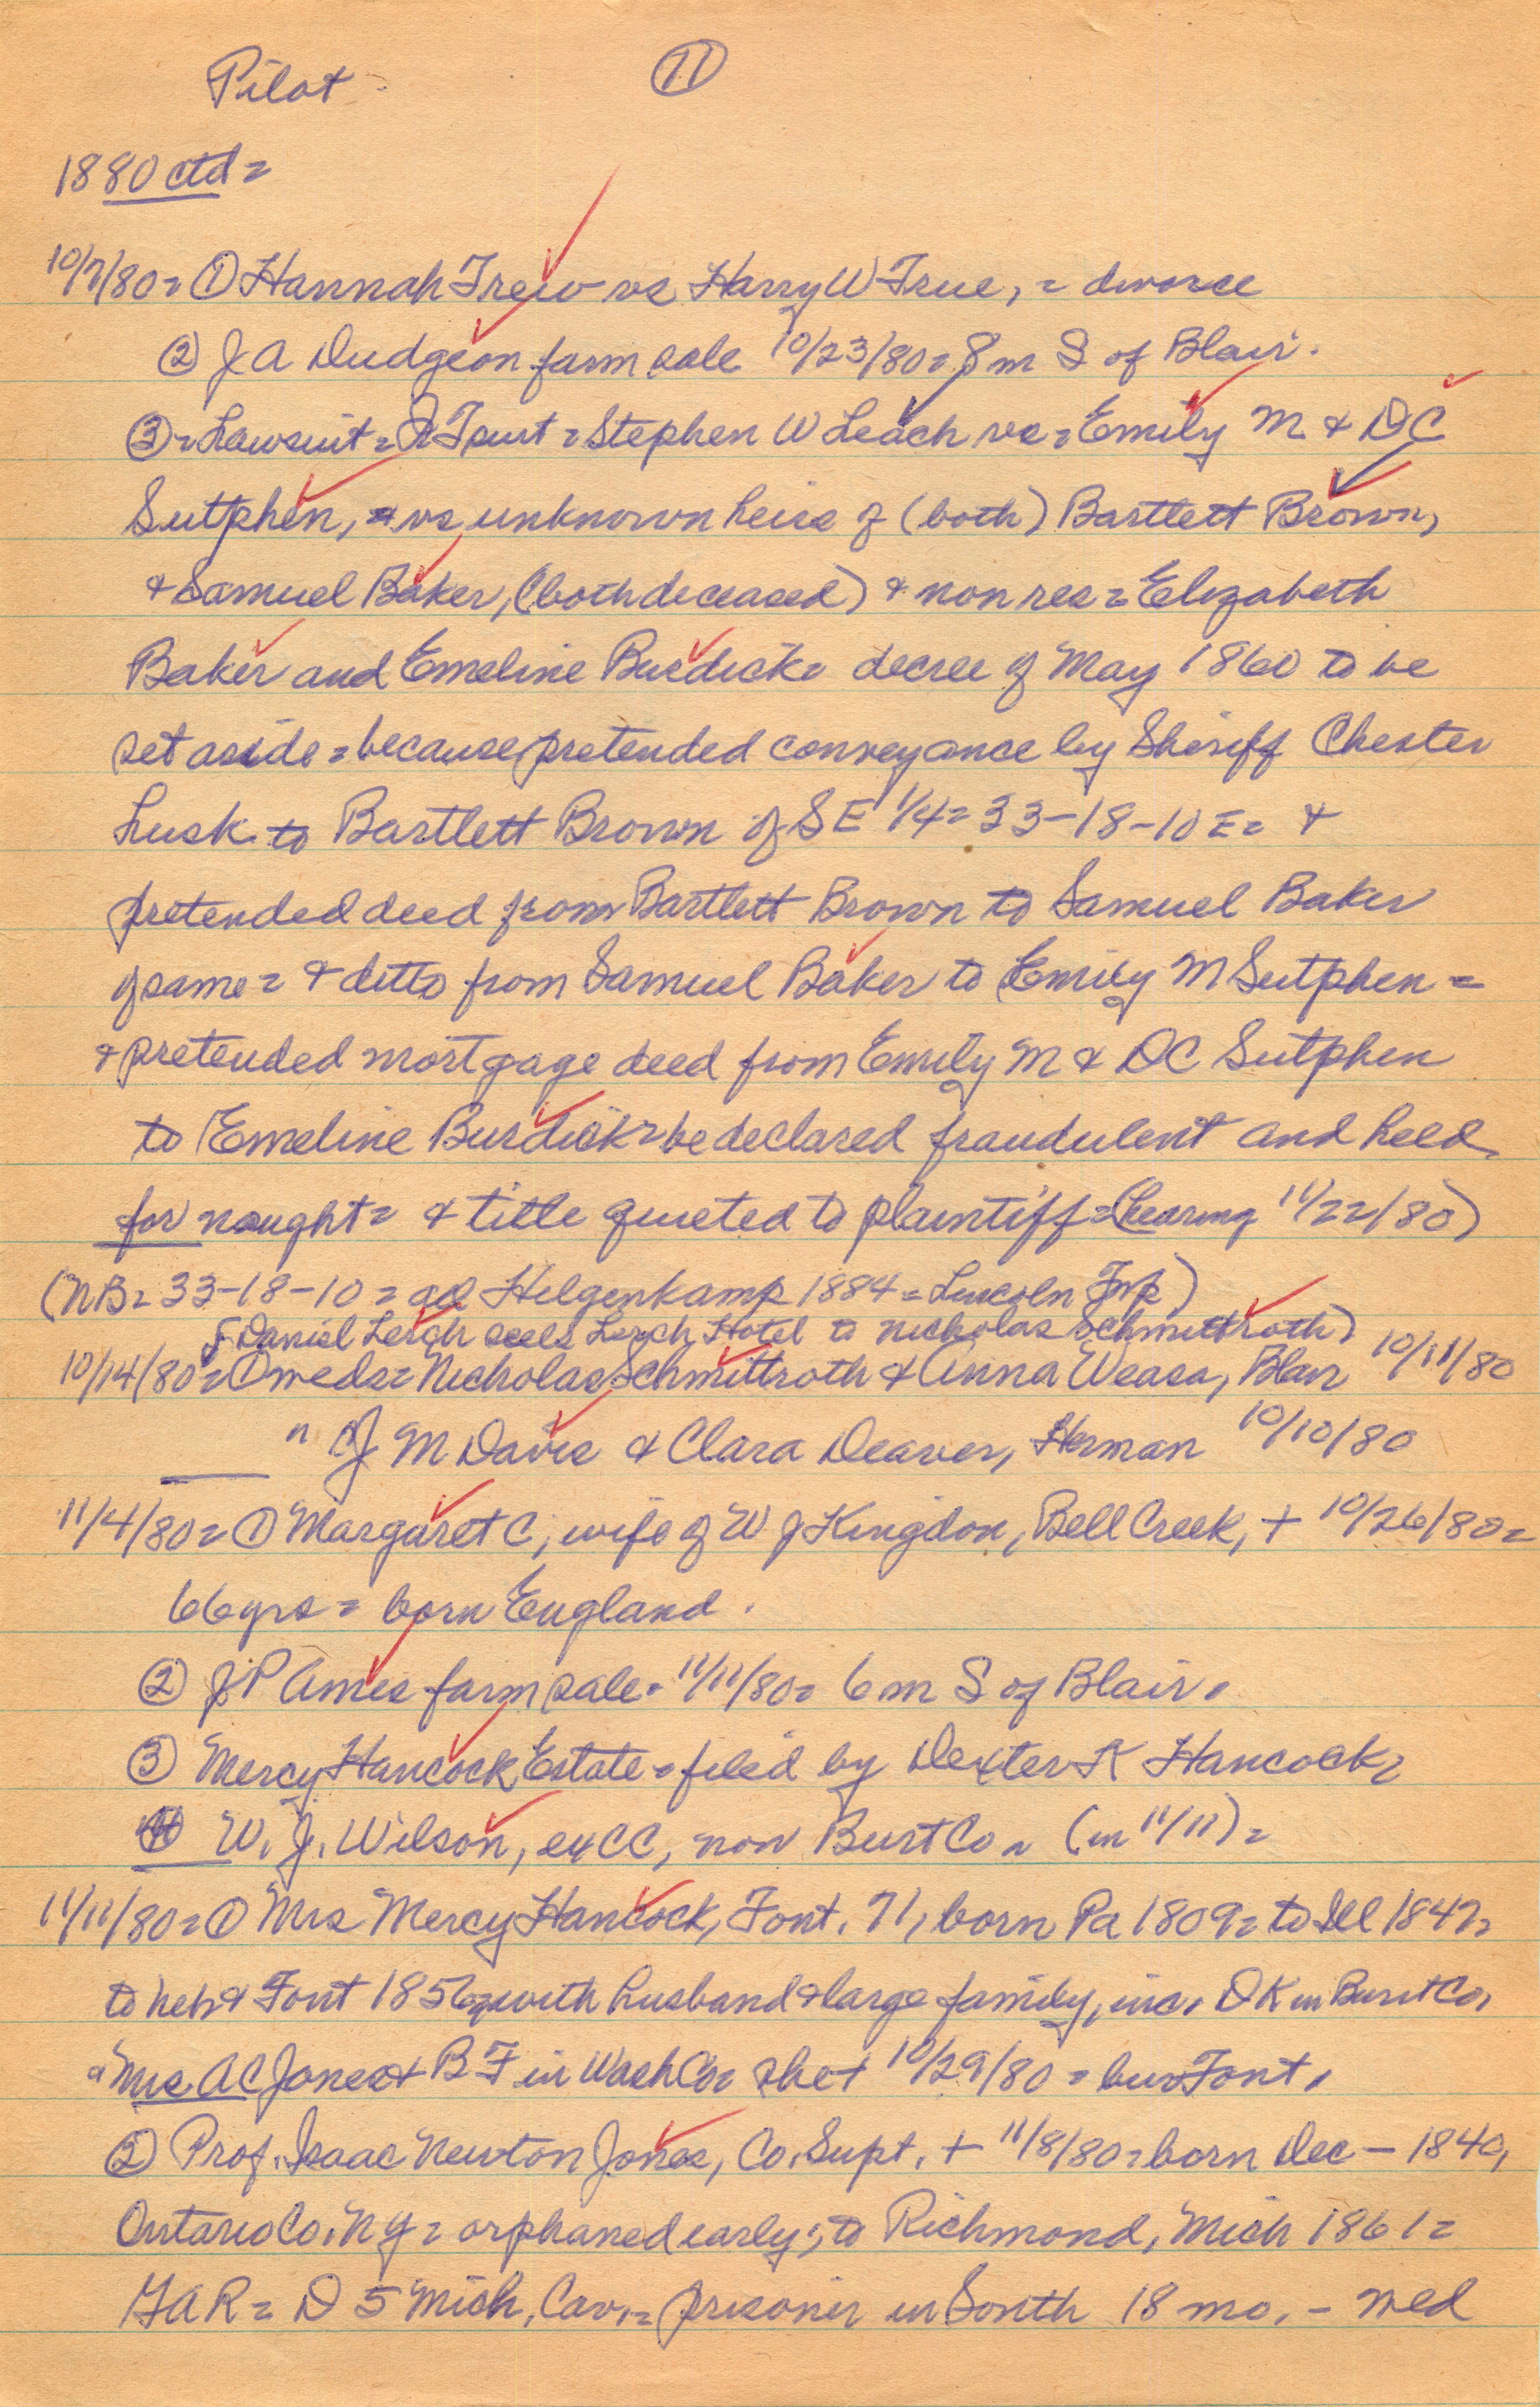 Pilot 11
1880 ctd =
10/7/80 = ① Hannah Trew vs Harry W True, = divorce
② J A Dudgeon farm sale 10/23/80 = 8 m S of Blair.
③ = Lawsuit = = Stephen W Leach vs = Emily M & D C
Sutphen, & vs unknown heirs of (both) Bartlett Brown,
& Samuel Baker, (both deceased) & non res = Elizabeth
Baker and Emeline Burdick = decree of May 1860 to be
set aside = because pretended conveyance by Sheriff Chester
Lusk to Bartlett Brown of SE 1/4 = 33-18-10 E = &
pretended deed from Bartlett Brown to Samuel Baker
of same = & ditto from Samuel Baker to Emily M Sutphen =
& pretended mortgage deed from Emily M & DC Sutphen
to Emeline Burdick = be declared fraudulent and held
for naught = & title quieted to plaintiff = (hearing 11/22/80)
(NB = 33-18-10 = ad Hilgenkamp 1884 = Lincoln Twp)
Daniel Lerch sells Lerch Hotel to Nicholas Schmittroth)
10/14/80 = ① weds = Nicholas Schmittroth & Anna Weasa, Blair 10/11/80
" J M Davis & Clara Deaver, Herman 10/10/80
11/4/80 = ① Margaret C, wife of W J Kingdon, Bell Creek, + 10/26/80 =
66 yrs = born England.
② J P Ames farm sale = 11/11/80 = 6 m S of Blair.
③ Mercy Hancock Estate = filed by Dexter K Hancock =
④ W. J. Wilson, ex CC, now Burt Co = (in 11/11) =
11/11/80 = ① Mrs Mercy Hancock, Font. 71, born Pa 1809 = to Ill 1847 =
to Neb & Font 1856 = with husband & large family, inc. DK in Burt Co,
& Mrs AC Jones & B F in Wash Co = she + 10/29/80 = bur Font.
② Prof. Isaac Newton Jones, Co. Supt. + 11/8/80 = born Dec - 1840,
Ontario Co. NY = orphaned early; to Richmond, Mich 1861 =
GAR = D 5 Mich. Cav. = prisoner in South 18 mo. - wed